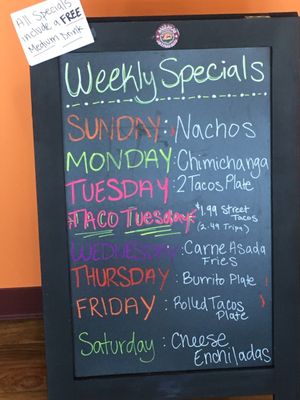 All Specials
include a FREE
Medium Drink
Weekly Specials
SUNDAY: Nachos
MONDAY: Chimichanga
TUESDAY: 2 Tacos Plate
#TACO Tuesday $1.99 Street
Tacos
(2.49 Tripa)
WEDNESDAY: Carne Asada
Fries
THURSDAY: Burrito Plate
FRIDAY: Rolled Tacos
Plate
Saturday: Cheese
Enchiladas